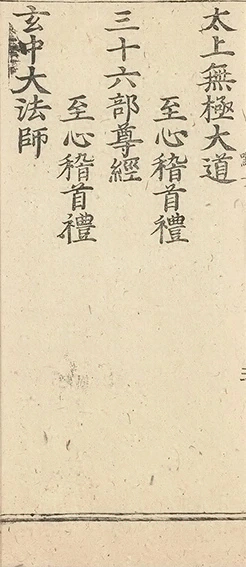 太上無極大道
至心稽首禮
三十六部尊經
至心稽首禮
玄中大法師